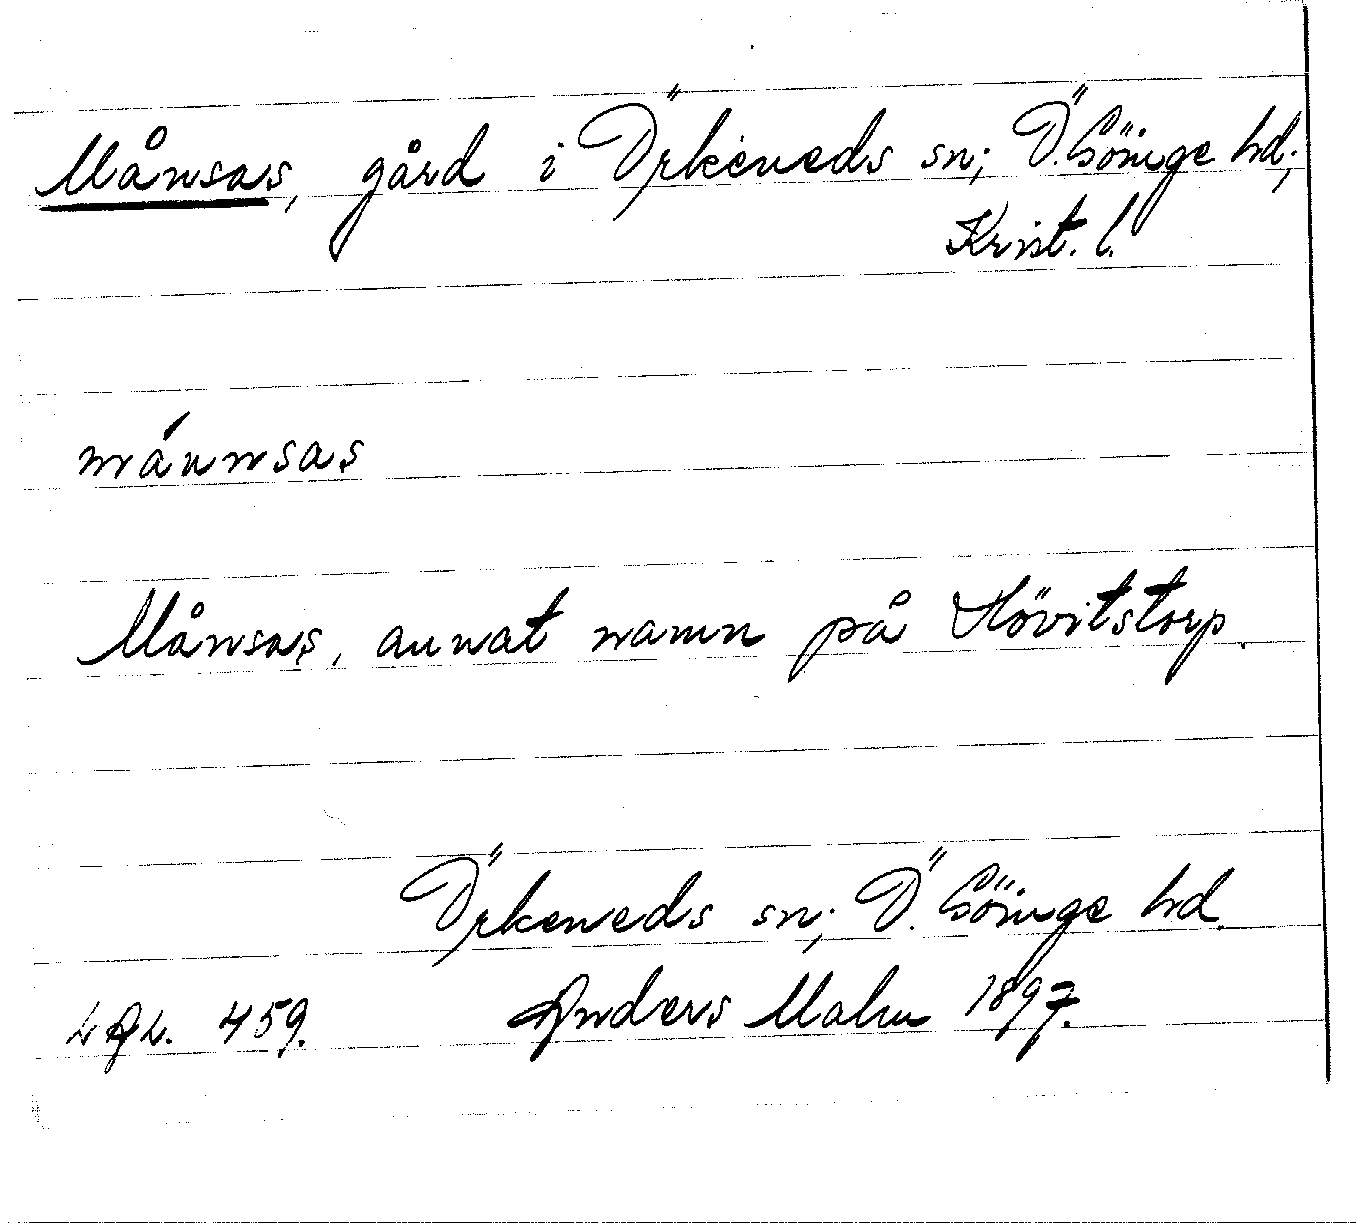 Månsas, gård i Örkeneds sn; Ö. Göinge hd;
Krist. l.
månnsas
Månsas, annat namn på Hövitstorp.
Örkeneds sn; Ö. Göinge hd.
459. Anders Malm 1897.